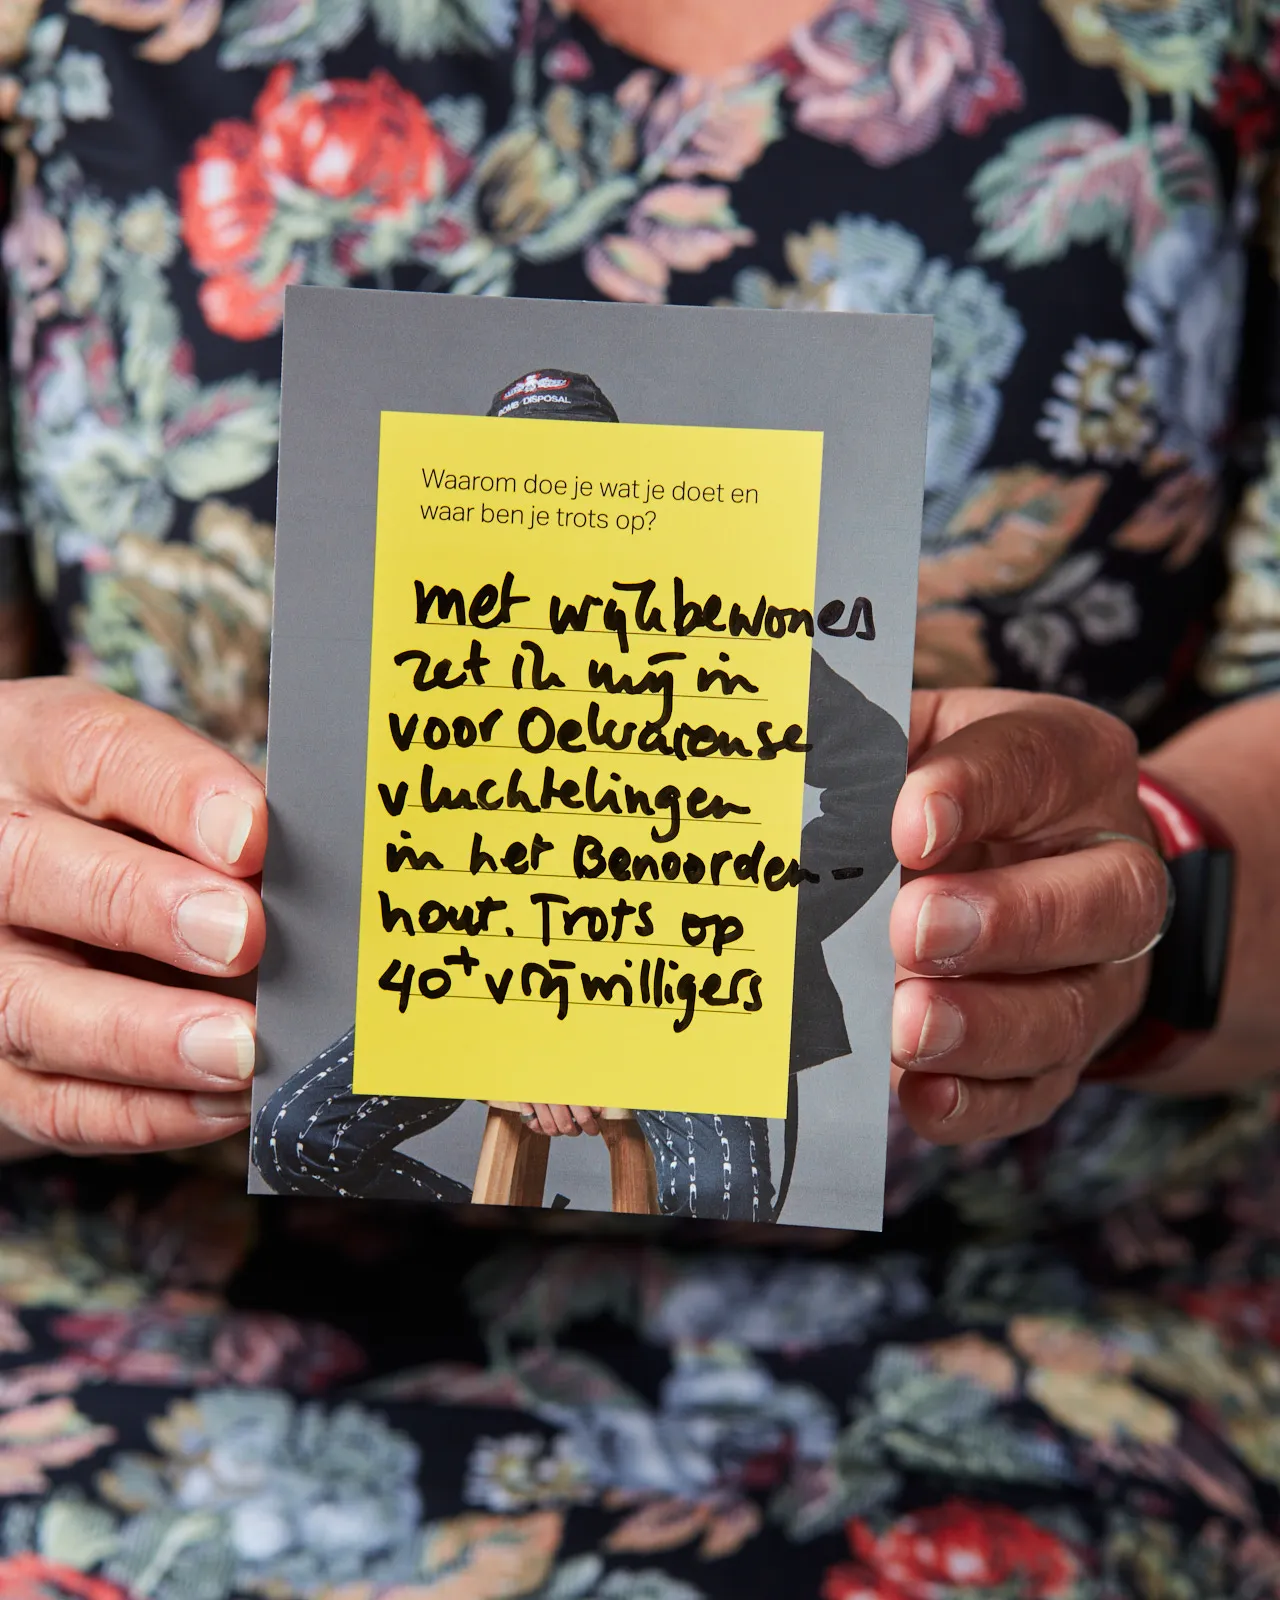 BOMB DISPOSAL
Waarom doe je wat je doet en
waar ben je trots op?
met wijkbewones
zet ik mij in
voor Oekraïense
vluchtelingen
in het Benoorden-
hout. Trots op
40+ vrijwilligers